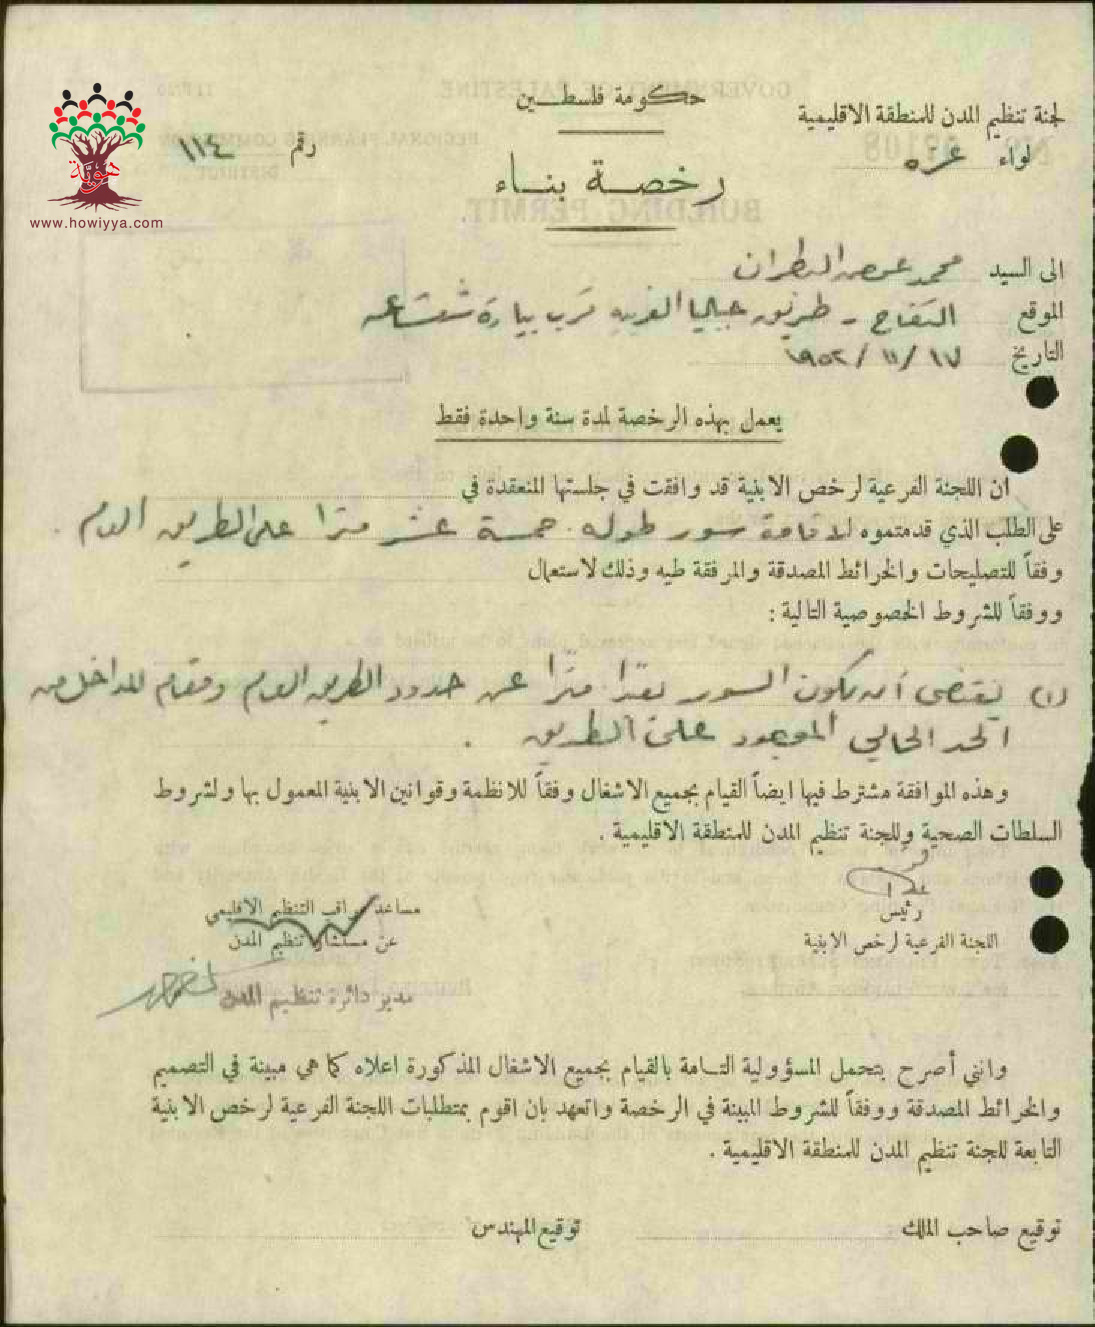 حكومة فلسطين
لجنة تنظيم المدن للمنطقة الاقليمية
لواء غزه
رقم ١١٤
هوية
www.howiyya.com
رخصة بناء
BUILDING PERMIT.
الى السيد محمد عوض البطران
الموقع التفاح - طريق جباليا الغربيه قرب بيارة شعشاعه
التاريخ ١٧ / ١١ / ١٩٥٢
يعمل بهذه الرخصة لمدة سنة واحدة فقط
ان اللجنة الفرعية لرخص الابنية قد وافقت في جلستها المنعقدة في
على الطلب الذي قدمتموه لاقامة سور طوله خمسة عشر مترا على الطريق العام .
وفقاً للتصليحات والخرائط المصدقة والمرفقة طيه وذلك لاستعمال
ووفقاً للشروط الخصوصية التالية :
(١) يقتضى أن يكون السور بعده مترا عن حدود الطريق العام ومقام للداخل من
الحد الحالي الموجود على الطريق .
وهذه الموافقة مشترط فيها ايضاً القيام بجميع الاشغال وفقاً للانظمة وقوانين الابنية المعمول بها ولشروط
السلطات الصحية وللجنة تنظيم المدن للمنطقة الاقليمية .
رئيس
اللجنة الفرعية لرخص الابنية
مساعد مراقب التنظيم الاقليمي
عن مستشار تنظيم المدن
مدير دائرة تنظيم المدن
وانني أصرح بتحمل المسؤولية التامة بالقيام بجميع الاشغال المذكورة اعلاه كما هي مبينة في التصميم
والخرائط المصدقة ووفقاً للشروط المبينة في الرخصة واتعهد بان اقوم بمتطلبات اللجنة الفرعية لرخص الابنية
التابعة للجنة تنظيم المدن للمنطقة الاقليمية .
توقيع صاحب الملك
توقيع المهندس